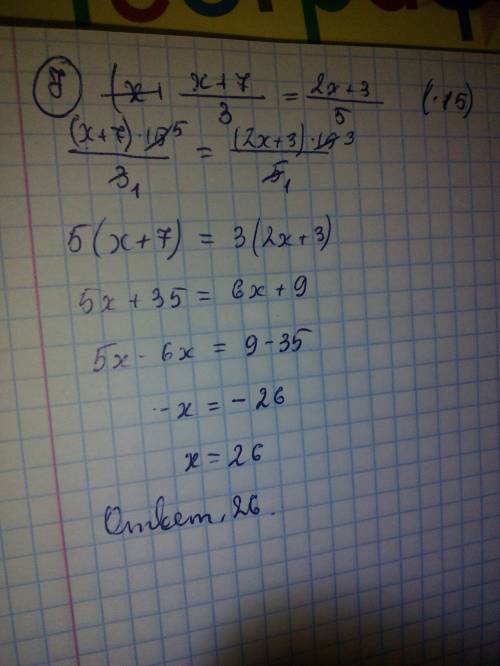 7) x+7/3 = 2x+3/5 (·15)
(x+7)·15 5/3 1 = (2x+3)·15 3/5 1
5(x+7) = 3(2x+3)
5x+35 = 6x+9
5x - 6x = 9-35
-x = -26
x = 26
Ответ, 26.